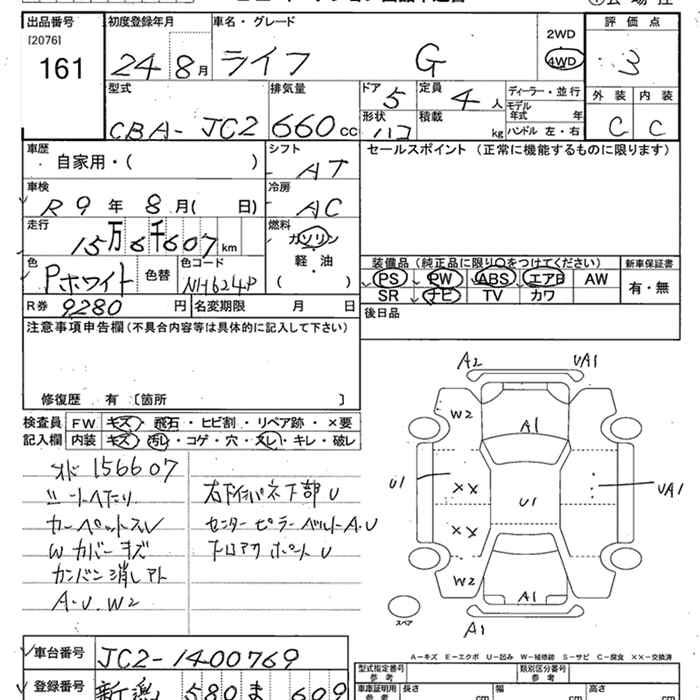 出品番号
[2076]
161
初度登録年月
24 8月
車名・グレード
ライフ G
2WD
4WD
評価点
3
型式
CBA-JC2
排気量
660cc
ドア
5
定員
4人
形状
ハコ
積載
kg
ディーラー・並行
モデル
年式 年
ハンドル 左・右
外装 内装
C C
車歴
自家用・( )
シフト
AT
セールスポイント (正常に機能するものに限ります)
車検
R9年 8月( 日)
冷房
AC
走行
15万6千607km
燃料
ガソリン
軽・油
( )
色
Pホワイト
色替
色コード
NH624P
装備品(純正品に限り○をつけてください)
PS PW ABS エアB AW
SR ナビ TV カワ
新車保証書
有・無
R券 9280円
名変期限 月 日
後日品
注意事項申告欄(不具合内容等は具体的に記入して下さい)
修復歴 有 〔箇所 〕
検査員
記入欄
FW キズ・飛石・ヒビ割・リペア跡・×要
内装 キズ・汚レ・コゲ・穴・スレ・キレ・破レ
メド 156607
シートヘタリ
カーペットスレ
Wカバーキズ
カンバン消しアト
A・U・W2
右下インパネ下部U
センターピラーベルトA.U
フロアクホートU
A2
UA1
W2
A1
U1
××
U1
UA1
××
W2
A1
A1
スペア
A-キズ E-エクボ U-凹み W-補修跡 S-サビ C-腐食 ××-交換済
車台番号
JC2-1400769
登録番号
新潟 580 ま 609
型式指定番号
参考
類別区分番号
参考
車庫証明用
参考
長さ cm
幅 cm
高さ cm